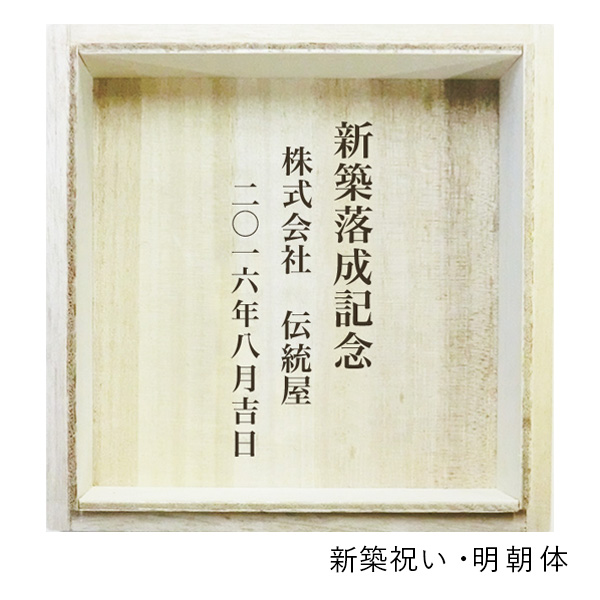 新築落成記念
株式会社　伝統屋
二〇一六年八月吉日
新築祝い・明朝体